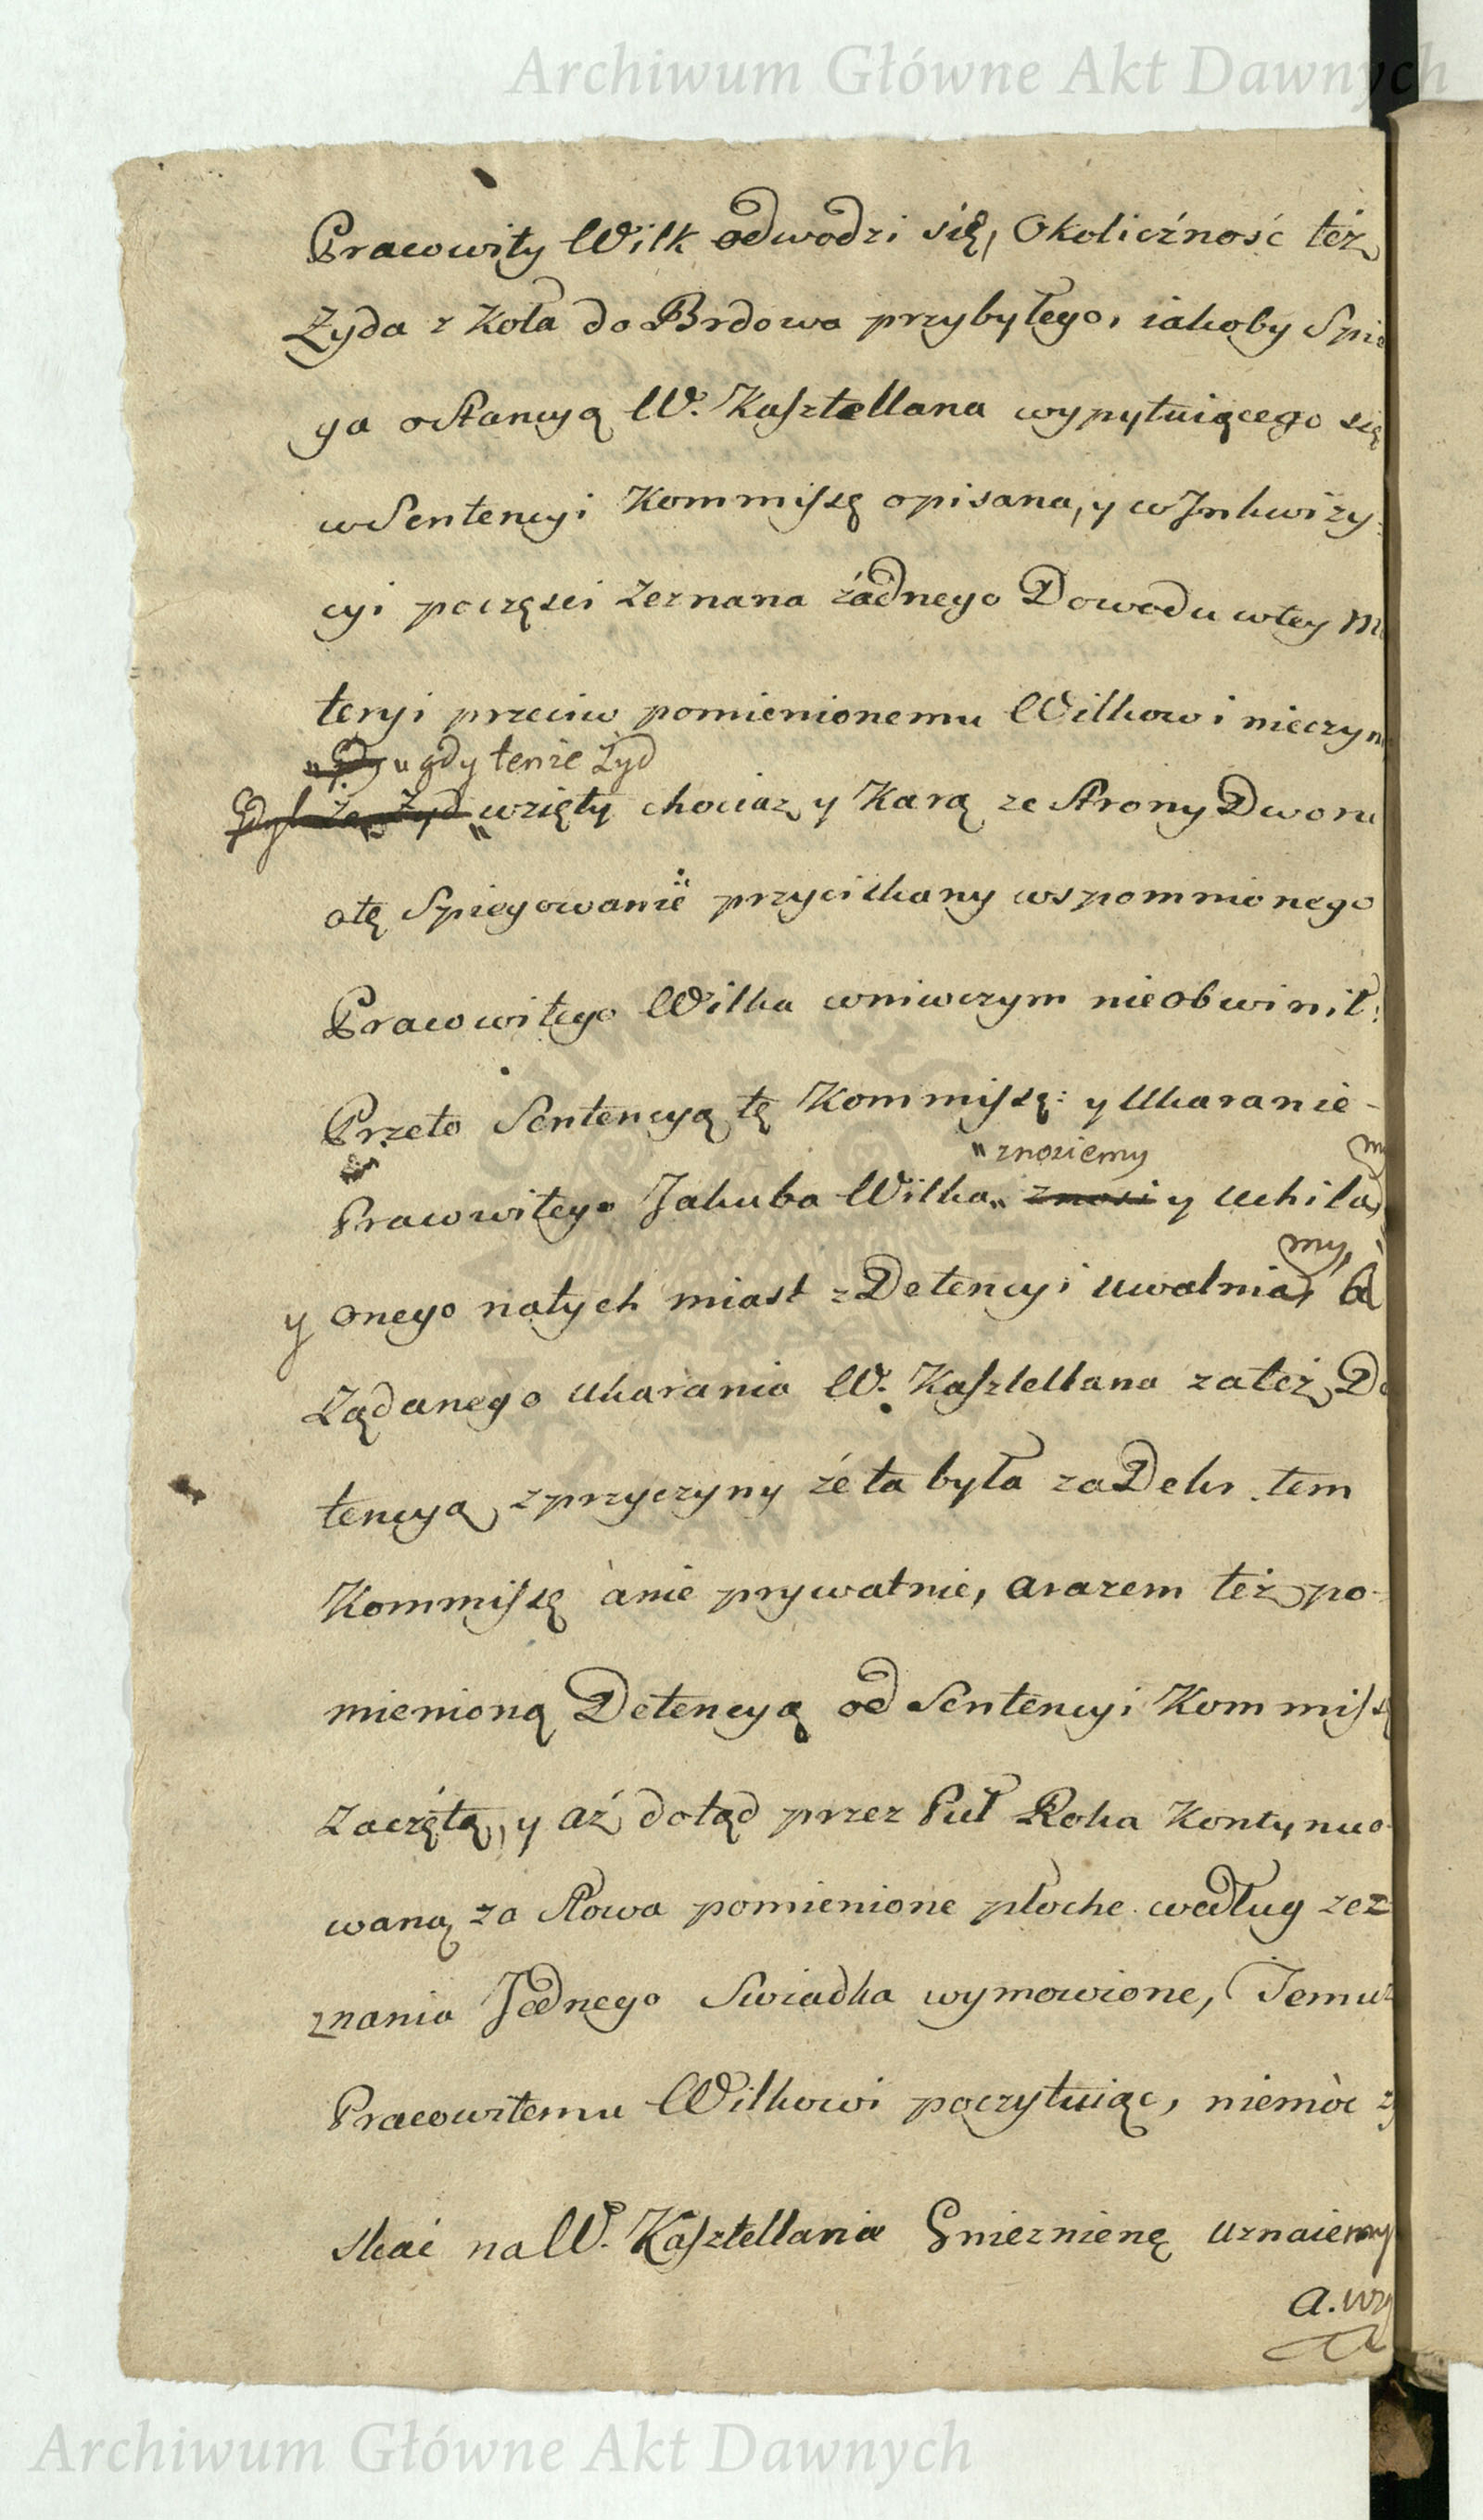 Archiwum Główne Akt Dawnych
Pracowity Wilk odwodzi się, Okoliczność też
Żyda z Koła do Brdowa przybyłego, iakoby Spie
ga o Stancyą W. Kasztellana wypytuiącego się
w Sentencyi Kommissę opisana, y w Inkwizy-
cyi poczęsci zeznana żadnego Dowodu w tey Ma
teryi przeciw pomienionemu Wilkowi nieczyni
gdy tenże Żyd
wzięty chociaz y Karą ze Strony Dworu
o tę Spiegowanie przyciskany wspomnionego
Pracowitego Wilka w niwczym nieobwinił:
Przeto Sentencyą tę Kommissę: y Ukaranie -
znosiemy my
Pracowitego Jakuba Wilka znosi y uchila
my,
y onego natych miast z Detencyi uwalnia, a
Żądanego ukarania W. Kasztellana zateż De
tencyą z przyczyny że ta była za Dekr. tem
Kommissę anie prywatnie, a razem też po-
mienioną Detencyą od Sentencyi Kommissę
Zaczętą, y aż dotąd przez Puł Roka Kontynuo
waną za Słowa pomienione płoche według zez
znania Jednego Swiadka wymowione, Temuz
Pracowitemu Wilkowi poczytuiąc, niemóc zy
skać na W. Kasztellanie Gnieznienę uznaiemy
a. wzy
Archiwum Główne Akt Dawnych